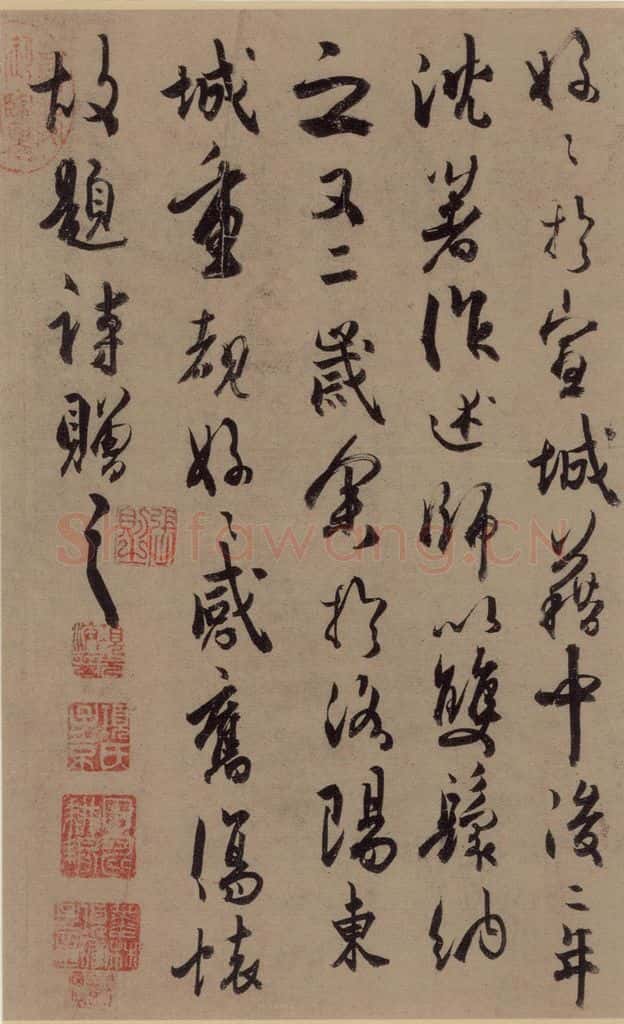 好〻於宣城籍中後二年
沈著作述師以雙鬟納
之又二歲余於洛陽東
城重覩好〻感舊傷懷
故題詩贈之
Shufawang.CN